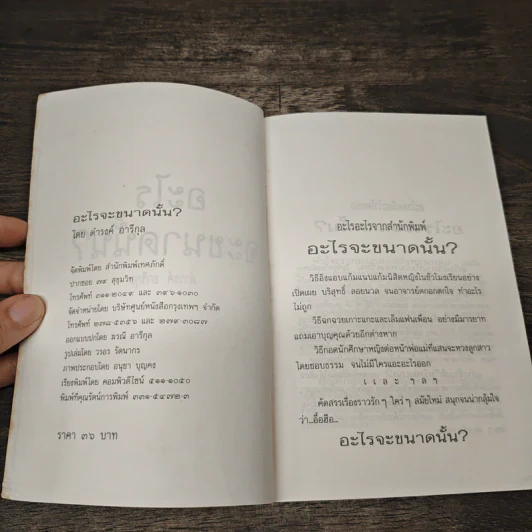 อะไรจะขนาดนั้น?
โดย ดำรงค์ อารีกุล
จัดพิมพ์โดย สำนักพิมพ์เทศภักดิ์
ปากซอย ๓๙ สุขุมวิท
โทรศัพท์ ๓๑๑-๒๐๔๙ และ ๓๙๖-๑๐๓๐
จัดจำหน่ายโดย บริษัทศูนย์หนังสือกรุงเทพฯ จำกัด
โทรศัพท์ ๒๓๘-๔๓๔๖ และ ๒๓๙ ๓๐๘๗
ออกแบบปกโดย อารีกุล
รูปเล่มโดย วรอร รัตนากร
ภาพประกอบโดย อนุชา บุญคง
เรียงพิมพ์โดย คอมพิวดีไซน์ ๔๑๑-๑๐๕๐
พิมพ์ที่คุณรัตน์การพิมพ์ ๓๓๑-๕๔๗๒-๓
ราคา ๓๖ บาท
อะไรอะไรจากสำนักพิมพ์
อะไรจะขนาดนั้น?
วิธีอิงแอบแก้มแนบแก้มนิสิตหญิงในชั่วโมงเรียนอย่าง
เปิดเผย บริสุทธิ์ ลอยนวล จนอาจารย์ตกอกตกใจ ทำอะไร
ไม่ถูก
วิธีฉกฉวยเกาะแกะและเล็มแฟนเพื่อน อย่างมีมารยาท
แถมเอาบุญคุณด้วยอีกต่างหาก
วิธีกอดนักศึกษาหญิงต่อหน้าพ่อแม่ที่แสนจะหวงลูกสาว
โดยชอบธรรม จนไม่มีใครแอะอะไรออก
และ ฯลฯ
คัดสรรเรื่องราวรัก ๆ ใคร่ ๆ สมัยใหม่ สนุกจนน่ากลุ้มใจ
ว่า...อื้อฮือ...
อะไรจะขนาดนั้น?